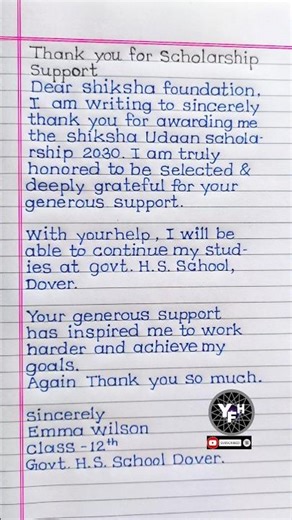 Thank you for Scholarship
Support
Dear Shiksha foundation,
I am writing to sincerely
thank you for awarding me
the Shiksha Udaan schola-
rship 2030. I am truly
honored to be selected &
deeply grateful for your
generous support.
With yourhelp, I will be
able to continue my stud-
ies at govt. H.S. School,
Dover.
Your generous support
has inspired me to work
harder and achieve my
goals.
Again Thank you so much.
Sincerely
Emma Wilson
Class - 12th
Govt. H.S. School Dover.
YFH
SUBSCRIBE